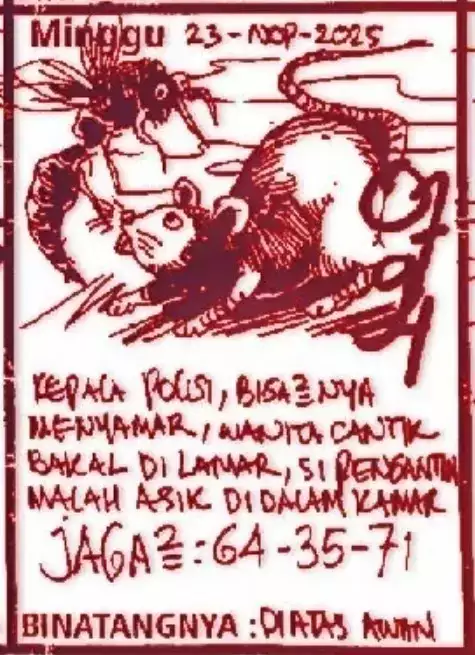 Minggu 23-NOP-2025
KEPALA POLISI, BISA2NYA
MENYAMAR, WANITA CANTIK
BAKAL DI LAMAR, SI PENGANTIN
MALAH ASIK DIDALAM KAMAR
JAGA2: 64-35-71
BINATANGNYA : DIATAS AWAN